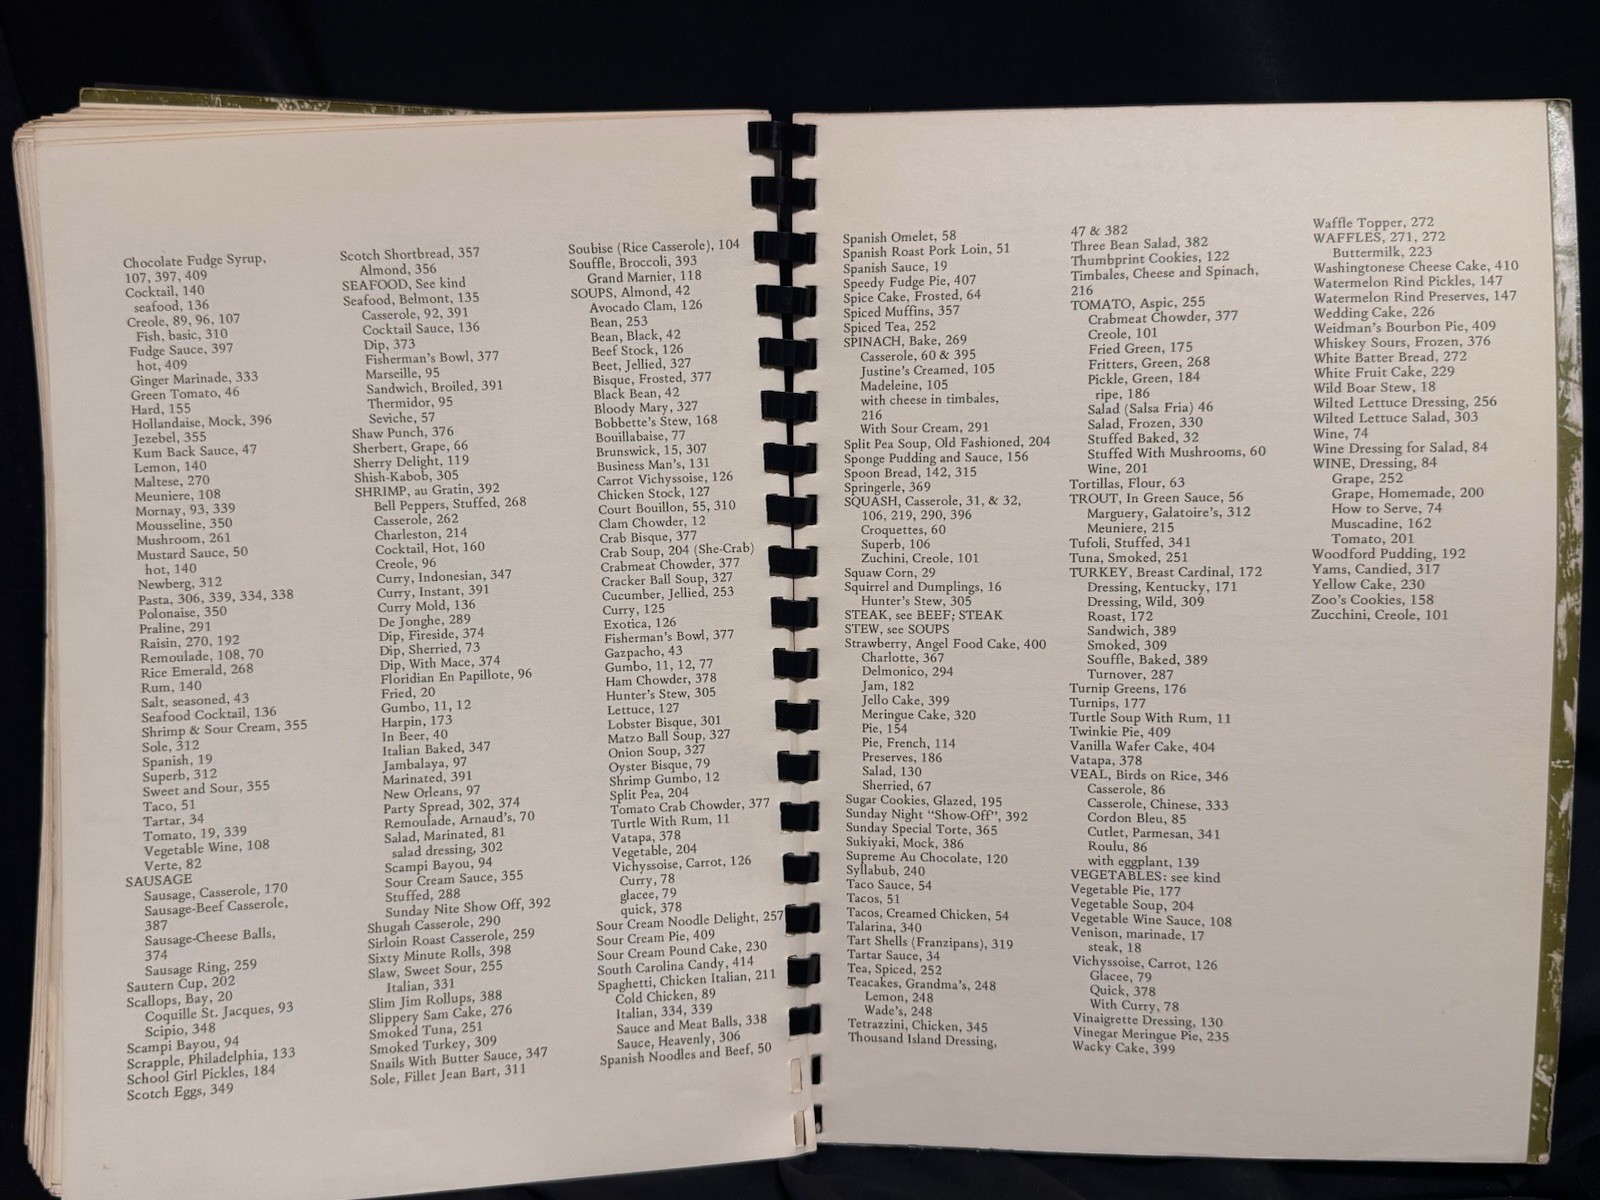 Chocolate Fudge Syrup,
107, 397, 409
Cocktail, 140
seafood, 136
Creole, 89, 96, 107
Fish, basic, 310
Fudge Sauce, 397
hot, 409
Ginger Marinade, 333
Green Tomato, 46
Hard, 155
Hollandaise, Mock, 396
Jezebel, 355
Kum Back Sauce, 47
Lemon, 140
Maltese, 270
Meuniere, 108
Mornay, 93, 339
Mousseline, 350
Mushroom, 261
Mustard Sauce, 50
hot, 140
Newberg, 312
Pasta, 306, 339, 334, 338
Polonaise, 350
Praline, 291
Raisin, 270, 192
Remoulade, 108, 70
Rice Emerald, 268
Rum, 140
Salt, seasoned, 43
Seafood Cocktail, 136
Shrimp & Sour Cream, 355
Sole, 312
Spanish, 19
Superb, 312
Sweet and Sour, 355
Taco, 51
Tartar, 34
Tomato, 19, 339
Vegetable Wine, 108
Verte, 82
SAUSAGE
Sausage, Casserole, 170
Sausage-Beef Casserole,
387
Sausage-Cheese Balls,
374
Sausage Ring, 259
Sautern Cup, 202
Scallops, Bay, 20
Coquille St. Jacques, 93
Scipio, 348
Scampi Bayou, 94
Scrapple, Philadelphia, 133
School Girl Pickles, 184
Scotch Eggs, 349
Scotch Shortbread, 357
Almond, 356
SEAFOOD, See kind
Seafood, Belmont, 135
Casserole, 92, 391
Cocktail Sauce, 136
Dip, 373
Fisherman's Bowl, 377
Marseille, 95
Sandwich, Broiled, 391
Thermidor, 95
Seviche, 57
Shaw Punch, 376
Sherbert, Grape, 66
Sherry Delight, 119
Shish-Kabob, 305
SHRIMP, au Gratin, 392
Bell Peppers, Stuffed, 268
Casserole, 262
Charleston, 214
Cocktail, Hot, 160
Creole, 96
Curry, Indonesian, 347
Curry, Instant, 391
Curry Mold, 136
De Jonghe, 289
Dip, Fireside, 374
Dip, Sherried, 73
Dip, With Mace, 374
Floridian En Papillote, 96
Fried, 20
Gumbo, 11, 12
Harpin, 173
In Beer, 40
Italian Baked, 347
Jambalaya, 97
Marinated, 391
New Orleans, 97
Party Spread, 302, 374
Remoulade, Arnaud's, 70
Salad, Marinated, 81
salad dressing, 302
Scampi Bayou, 94
Sour Cream Sauce, 355
Stuffed, 288
Sunday Nite Show Off, 392
Shugah Casserole, 290
Sirloin Roast Casserole, 259
Sixty Minute Rolls, 398
Slaw, Sweet Sour, 255
Italian, 331
Slim Jim Rollups, 388
Slippery Sam Cake, 276
Smoked Tuna, 251
Smoked Turkey, 309
Snails With Butter Sauce, 347
Sole, Fillet Jean Bart, 311
Soubise (Rice Casserole), 104
Souffle, Broccoli, 393
Grand Marnier, 118
SOUPS, Almond, 42
Avocado Clam, 126
Bean, 253
Bean, Black, 42
Beef Stock, 126
Beet, Jellied, 327
Bisque, Frosted, 377
Black Bean, 42
Bloody Mary, 327
Bobbette's Stew, 168
Bouillabaise, 77
Brunswick, 15, 307
Business Man's, 131
Carrot Vichyssoise, 126
Chicken Stock, 127
Court Bouillon, 55, 310
Clam Chowder, 12
Crab Bisque, 377
Crab Soup, 204 (She-Crab)
Crabmeat Chowder, 377
Cracker Ball Soup, 327
Cucumber, Jellied, 253
Curry, 125
Exotica, 126
Fisherman's Bowl, 377
Gazpacho, 43
Gumbo, 11, 12, 77
Ham Chowder, 378
Hunter's Stew, 305
Lettuce, 127
Lobster Bisque, 301
Matzo Ball Soup, 327
Onion Soup, 327
Oyster Bisque, 79
Shrimp Gumbo, 12
Split Pea, 204
Tomato Crab Chowder, 377
Turtle With Rum, 11
Vatapa, 378
Vegetable, 204
Vichyssoise, Carrot, 126
Curry, 78
glacee, 79
quick, 378
Sour Cream Noodle Delight, 257
Sour Cream Pie, 409
Sour Cream Pound Cake, 230
South Carolina Candy, 414
Spaghetti, Chicken Italian, 211
Cold Chicken, 89
Italian, 334, 339
Sauce and Meat Balls, 338
Sauce, Heavenly, 306
Spanish Noodles and Beef, 50
Spanish Omelet, 58
Spanish Roast Pork Loin, 51
Spanish Sauce, 19
Speedy Fudge Pie, 407
Spice Cake, Frosted, 64
Spiced Muffins, 357
Spiced Tea, 252
SPINACH, Bake, 269
Casserole, 60 & 395
Justine's Creamed, 105
Madeleine, 105
with cheese in timbales,
216
With Sour Cream, 291
Split Pea Soup, Old Fashioned, 204
Sponge Pudding and Sauce, 156
Spoon Bread, 142, 315
Springerle, 369
SQUASH, Casserole, 31, & 32,
106, 219, 290, 396
Croquettes, 60
Superb, 106
Zuchini, Creole, 101
Squaw Corn, 29
Squirrel and Dumplings, 16
Hunter's Stew, 305
STEAK, see BEEF; STEAK
STEW, see SOUPS
Strawberry, Angel Food Cake, 400
Charlotte, 367
Delmonico, 294
Jam, 182
Jello Cake, 399
Meringue Cake, 320
Pie, 154
Pie, French, 114
Preserves, 186
Salad, 130
Sherried, 67
Sugar Cookies, Glazed, 195
Sunday Night "Show-Off", 392
Sunday Special Torte, 365
Sukiyaki, Mock, 386
Supreme Au Chocolate, 120
Syllabub, 240
Taco Sauce, 54
Tacos, 51
Tacos, Creamed Chicken, 54
Talarina, 340
Tart Shells (Franzipans), 319
Tartar Sauce, 34
Tea, Spiced, 252
Teacakes, Grandma's, 248
Lemon, 248
Wade's, 248
Tetrazzini, Chicken, 345
Thousand Island Dressing,
47 & 382
Three Bean Salad, 382
Thumbprint Cookies, 122
Timbales, Cheese and Spinach,
216
TOMATO, Aspic, 255
Crabmeat Chowder, 377
Creole, 101
Fried Green, 175
Fritters, Green, 268
Pickle, Green, 184
ripe, 186
Salad (Salsa Fria) 46
Salad, Frozen, 330
Stuffed Baked, 32
Stuffed With Mushrooms, 60
Wine, 201
Tortillas, Flour, 63
TROUT, In Green Sauce, 56
Marguery, Galatoire's, 312
Meuniere, 215
Tufoli, Stuffed, 341
Tuna, Smoked, 251
TURKEY, Breast Cardinal, 172
Dressing, Kentucky, 171
Dressing, Wild, 309
Roast, 172
Sandwich, 389
Smoked, 309
Souffle, Baked, 389
Turnover, 287
Turnip Greens, 176
Turnips, 177
Turtle Soup With Rum, 11
Twinkie Pie, 409
Vanilla Wafer Cake, 404
Vatapa, 378
VEAL, Birds on Rice, 346
Casserole, 86
Casserole, Chinese, 333
Cordon Bleu, 85
Cutlet, Parmesan, 341
Roulu, 86
with eggplant, 139
VEGETABLES: see kind
Vegetable Pie, 177
Vegetable Soup, 204
Vegetable Wine Sauce, 108
Venison, marinade, 17
steak, 18
Vichyssoise, Carrot, 126
Glacee, 79
Quick, 378
With Curry, 78
Vinaigrette Dressing, 130
Vinegar Meringue Pie, 235
Wacky Cake, 399
Waffle Topper, 272
WAFFLES, 271, 272
Buttermilk, 223
Washingtonese Cheese Cake, 410
Watermelon Rind Pickles, 147
Watermelon Rind Preserves, 147
Wedding Cake, 226
Weidman's Bourbon Pie, 409
Whiskey Sours, Frozen, 376
White Batter Bread, 272
White Fruit Cake, 229
Wild Boar Stew, 18
Wilted Lettuce Dressing, 256
Wilted Lettuce Salad, 303
Wine, 74
Wine Dressing for Salad, 84
WINE, Dressing, 84
Grape, 252
Grape, Homemade, 200
How to Serve, 74
Muscadine, 162
Tomato, 201
Woodford Pudding, 192
Yams, Candied, 317
Yellow Cake, 230
Zoo's Cookies, 158
Zucchini, Creole, 101